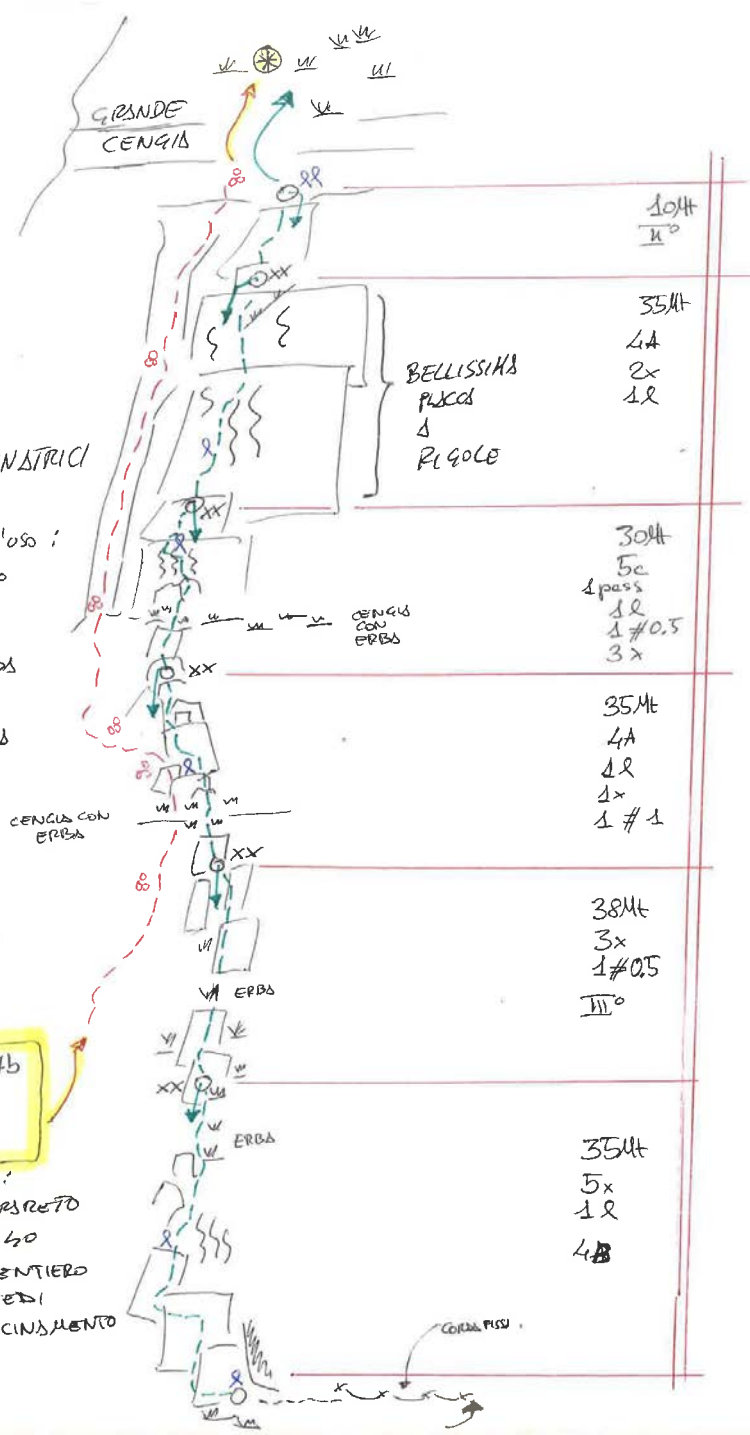 GRANDE
CENGIA
10Mt
II°
XX
35Mt
4A
2x
1l
BELLISSIMA
PLACCA
A
RIGOLE
NATRICI
XX
'USO :
30Mt
5c
1 pass
1l
1 #0.5
3x
CENGIA
CON
ERBA
XX
35Mt
4A
1l
1x
1 # 1
CENGIA CON
ERBA
XX
38Mt
3x
1#0.5
III°
ERBA
XX
ERBA
35Mt
5x
1l
4B
ENTIERO
EDI
CINAMENTO
CORDA FISSA.